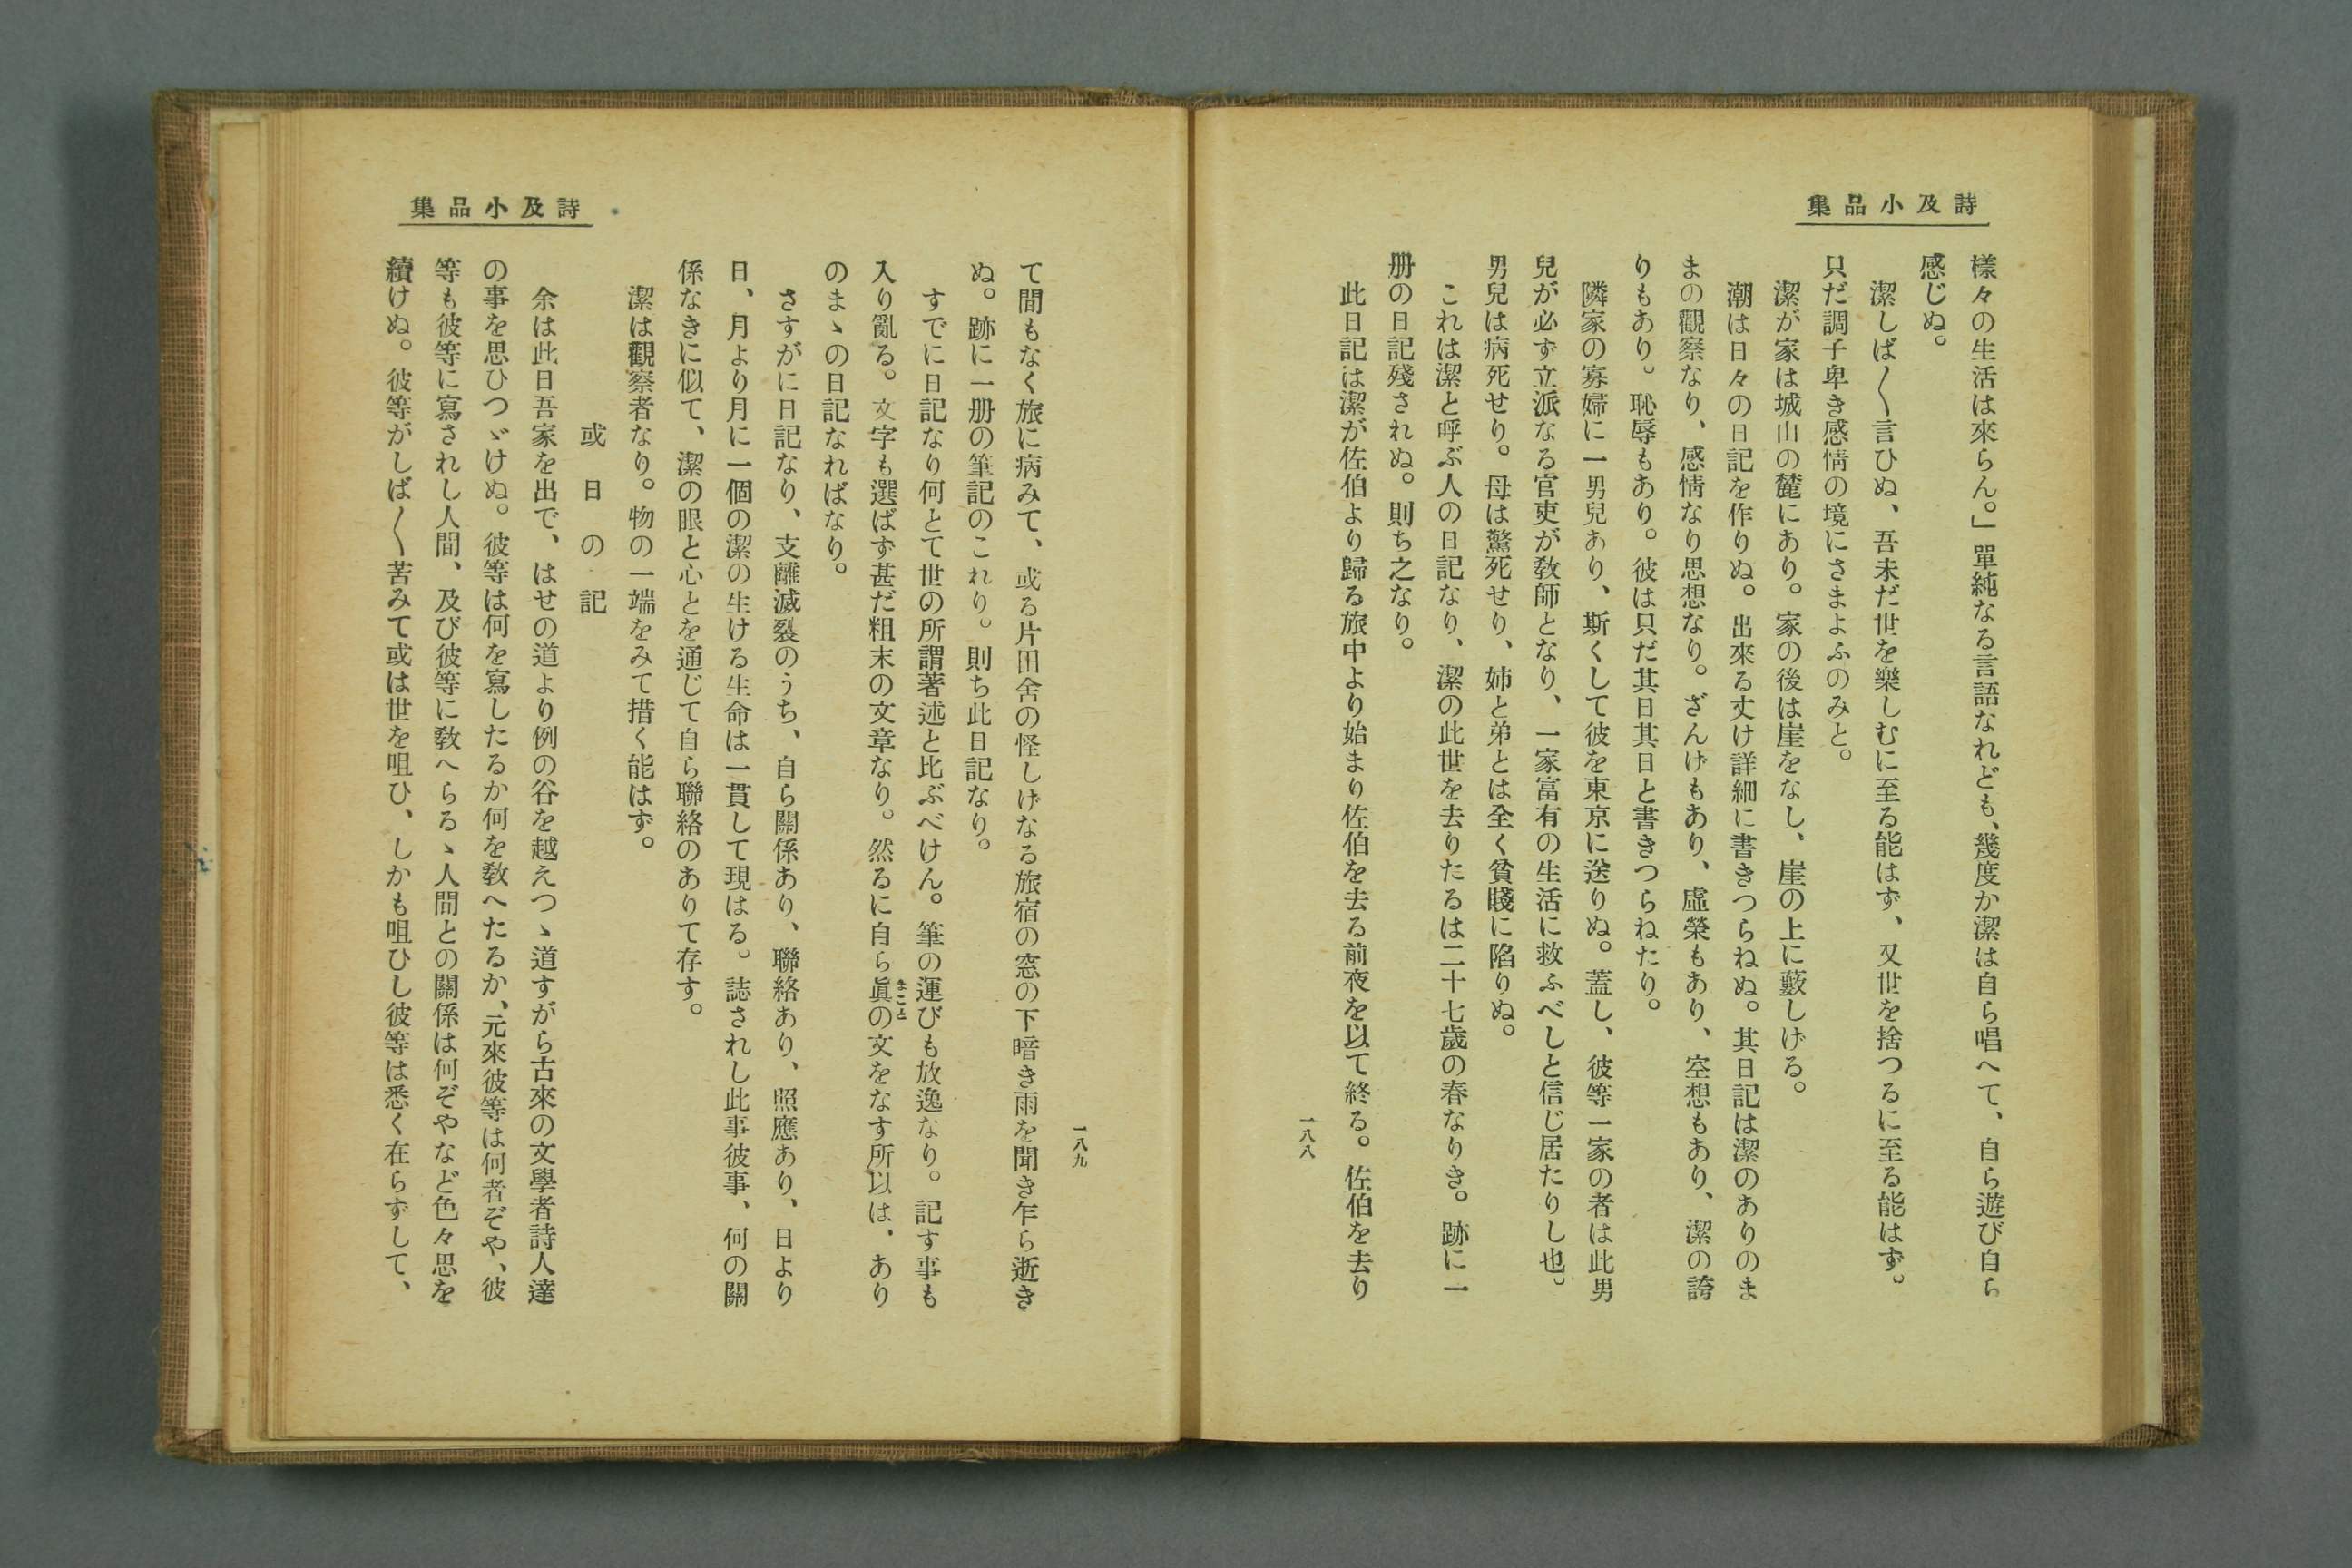 詩及小品集
樣々の生活は來らん。」單純なる言語なれども、幾度か潔は自ら唱へて、自ら遊び自ら
感じぬ。
潔しば〱言ひぬ、吾未だ世を樂しむに至る能はず、又世を捨つるに至る能はず。
只だ調子卑き感情の境にさまよふのみと。
潔が家は城山の麓にあり。家の後は崖をなし、崖の上に藪しげる。
潮は日々の日記を作りぬ。出來る丈け詳細に書きつらねぬ。其日記は潔のありのま
まの觀察なり、感情なり思想なり。ざんげもあり、虛榮もあり、空想もあり、潔の誇
りもあり。恥辱もあり。彼は只だ其日其日と書きつらねたり。
隣家の寡婦に一男兒あり、斯くして彼を東京に送りぬ。蓋し、彼等一家の者は此男
兒が必ず立派なる官吏が敎師となり、一家富有の生活に救ふべしと信じ居たりし也。
男兒は病死せり。母は驚死せり、姉と弟とは全く貧賤に陷りぬ。
これは潔と呼ぶ人の日記なり、潔の此世を去りたるは二十七歲の春なりき。跡に一
册の日記殘されぬ。則ち之なり。
此日記は潔が佐伯より歸る旅中より始まり佐伯を去る前夜を以て終る。佐伯を去り
一八八
詩及小品集
て間もなく旅に病みて、或る片田舍の怪しげなる旅宿の窓の下暗き雨を聞き乍ら逝き
ぬ。跡に一册の筆記のこれり。則ち此日記なり。
すでに日記なり何とて世の所謂著述と比ぶべけん。筆の運びも放逸なり。記す事も
入り亂る。文字も選ばず甚だ粗末の文章なり。然るに自ら眞の文をなす所以は、あり
まこと
のまゝの日記なればなり。
さすがに日記なり、支離滅裂のうち、自ら關係あり、聯絡あり、照應あり、日より
日、月より月に一個の潔の生ける生命は一貫して現はる。誌されし此事彼事、何の關
係なきに似て、潔の眼と心とを通じて自ら聯絡のありて存す。
潔は觀察者なり。物の一端をみて措く能はず。
或日の記
余は此日吾家を出で、はせの道より例の谷を越えつゝ道すがら古來の文學者詩人達
の事を思ひつゞけぬ。彼等は何を寫したるか何を敎へたるか、元來彼等は何者ぞや、彼
等も彼等に寫されし人間、及び彼等に敎へらるゝ人間との關係は何ぞやなど色々思を
續けぬ。彼等がしば〱苦みて或は世を咀ひ、しかも咀ひし彼等は悉く在らずして、
一八九